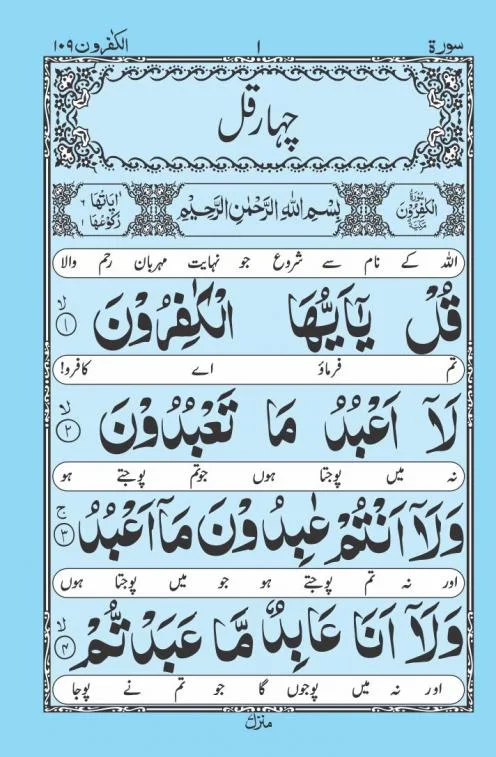 سورة ١ الكفرون ١٠٩
چہار قل
سُوْرَةُ الْكٰفِرُوْنَ مَكِّيَّةٌ بِسْمِ اللهِ الرَّحْمٰنِ الرَّحِيْمِ اٰيَاتُهَا ٦ رُكُوْعُهَا ١
اللہ کے نام سے شروع جو نہایت مہربان رحم والا
قُلْ يٰٓاَيُّهَا الْكٰفِرُوْنَ ۙ ١
تم فرماؤ اے کافرو!
لَاۤ اَعْبُدُ مَا تَعْبُدُوْنَ ۙ ٢
نہ میں پوجتا ہوں جوتم پوجتے ہو
وَلَاۤ اَنْتُمْ عٰبِدُوْنَ مَاۤ اَعْبُدُ ۚ ٣
اور نہ تم پوجتے ہو جو میں پوجتا ہوں
وَلَاۤ اَنَا عَابِدٌ مَّا عَبَدْتُّمْ ۙ ۴
اور نہ میں پوجوں گا جو تم نے پوجا
منزل